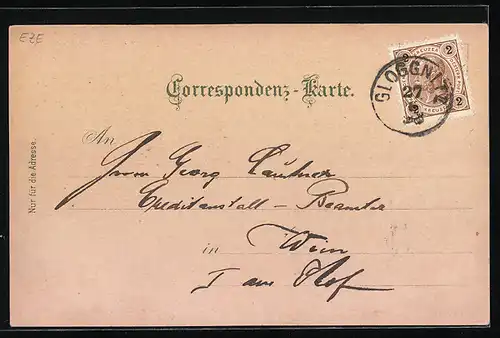 EZE
Correspondenz-Karte.
GLOGGNITZ
27
KREUZER
2
2
Nur für die Adresse.
An
Herrn Georg
Creditanstalt – Beamter
in Wien
I am Hof